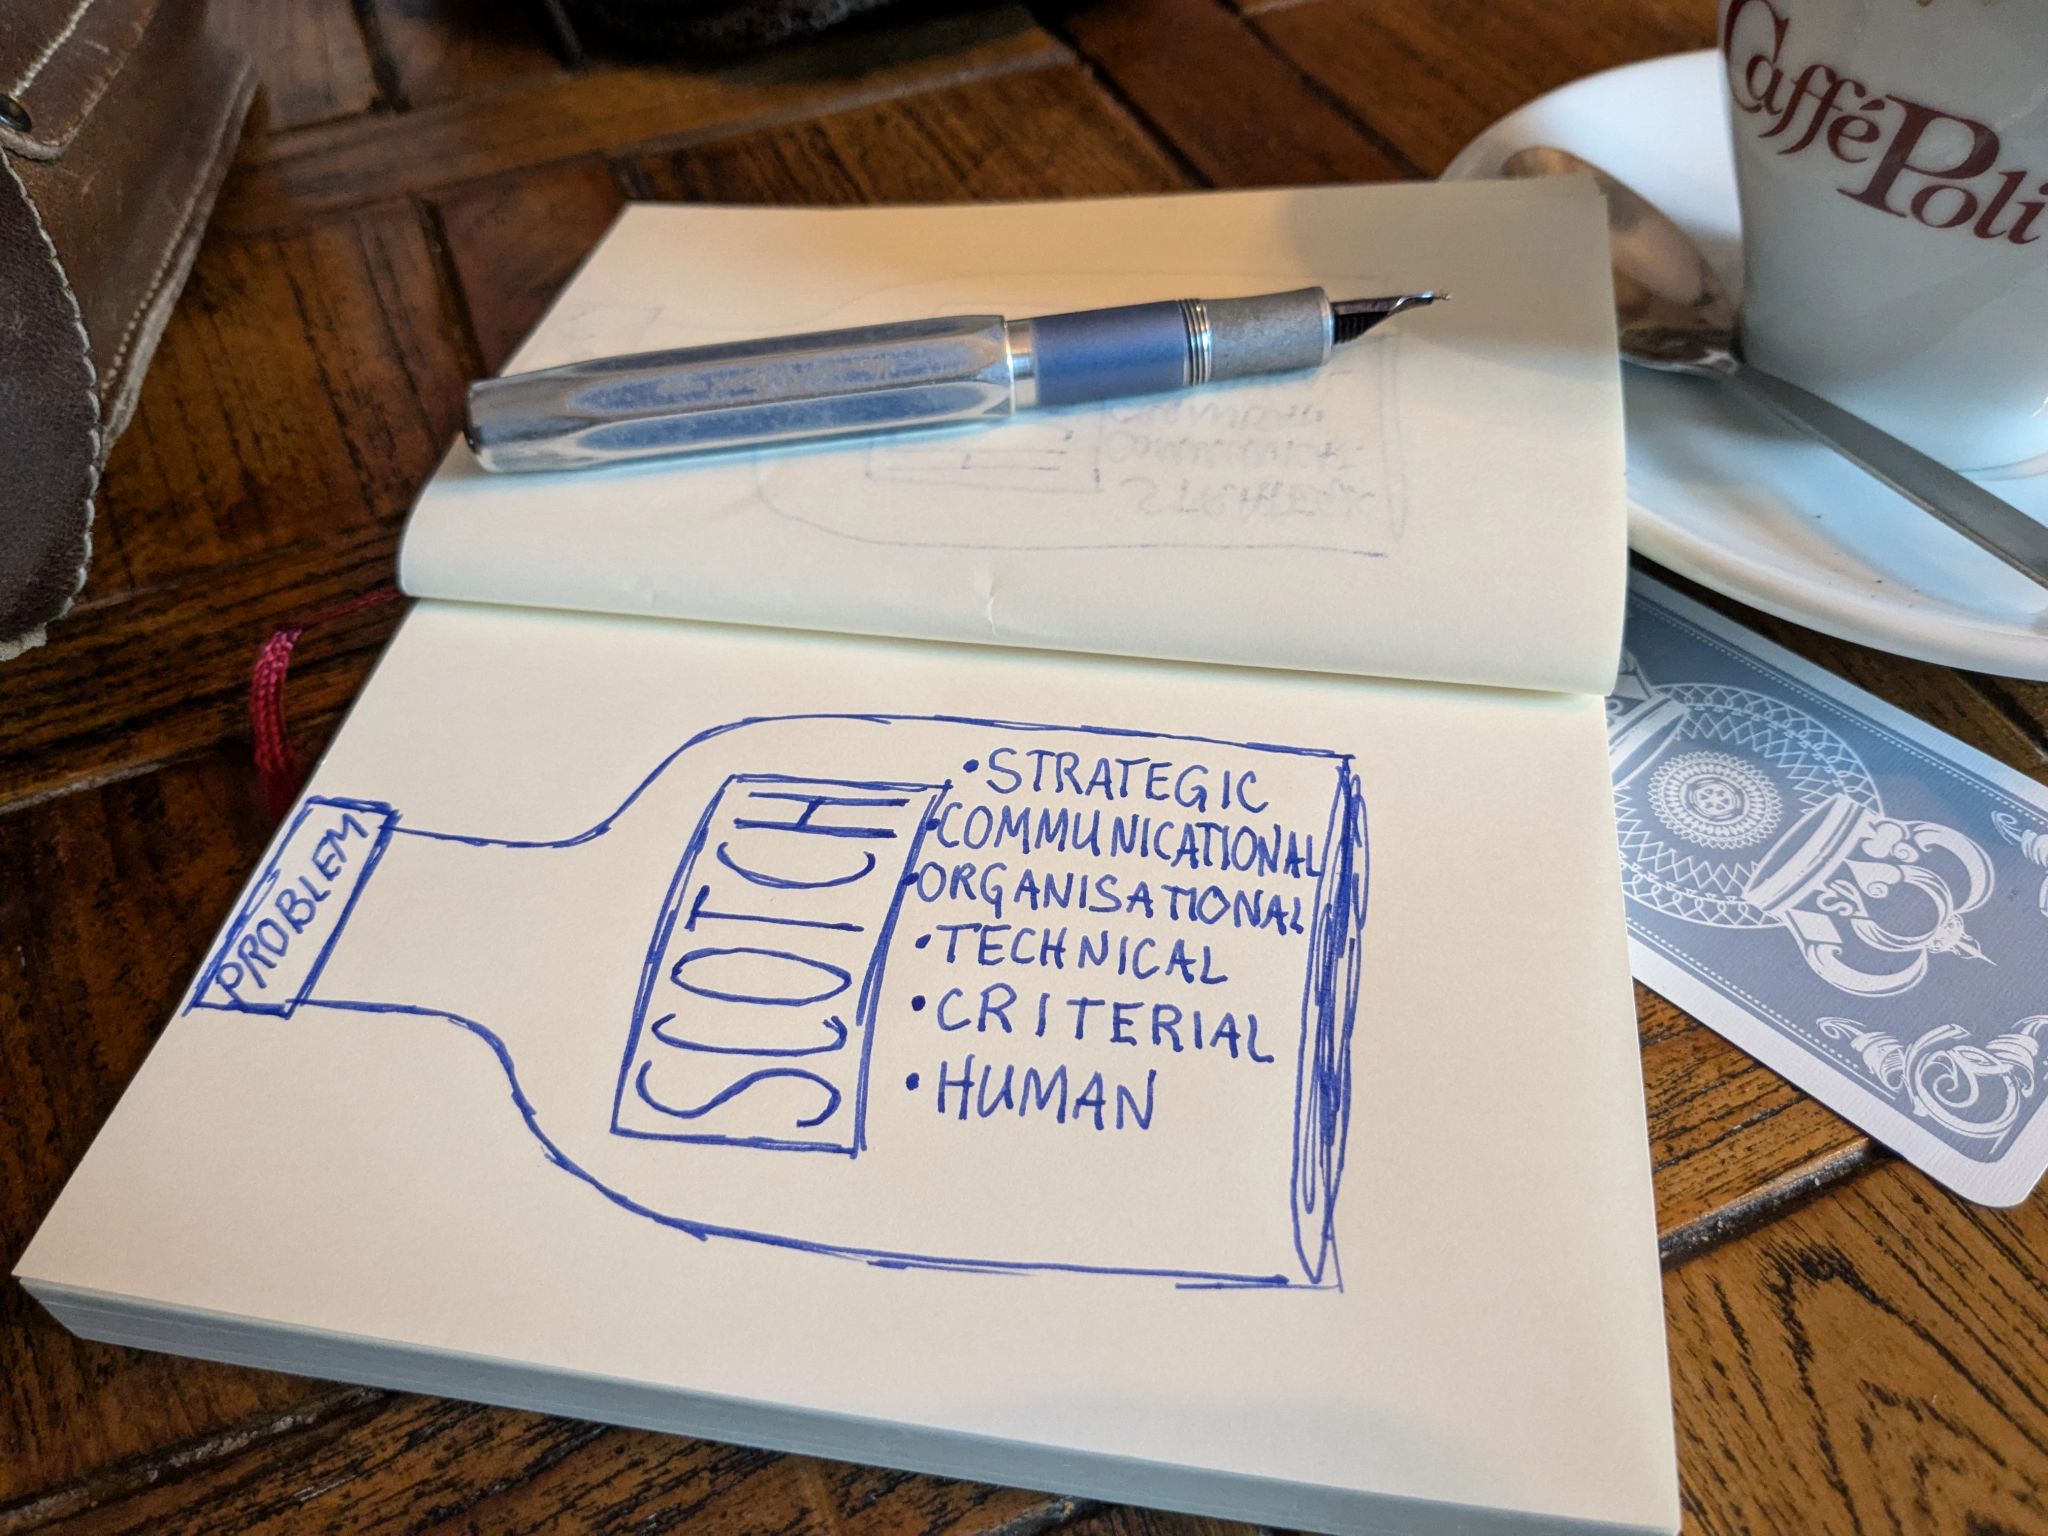 Caffé Poli
PROBLEM
SCOTCH
• STRATEGIC
• COMMUNICATIONAL
• ORGANISATIONAL
• TECHNICAL
• CRITERIAL
• HUMAN